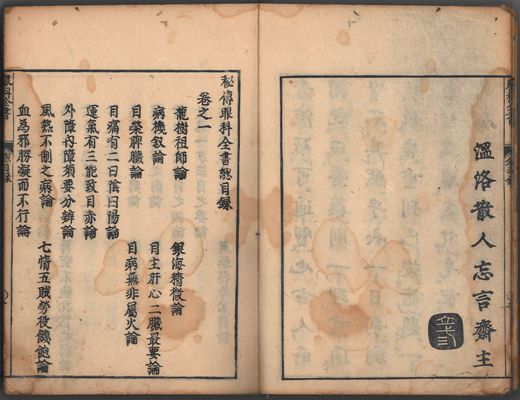 溫洛散人忘言齋主
秘傳眼科全書總目錄
卷之一
龍樹祖師論
銀海精微論
病機敘論
目主肝心二臟最要論
目榮脾臟論
目病無非屬火論
目痛有二曰陰曰陽論
運氣有三能致目赤論
外障內障須要分辨論
風熱不制之病論
七情五賊勞役飢飽論
血為邪勝凝而不行論